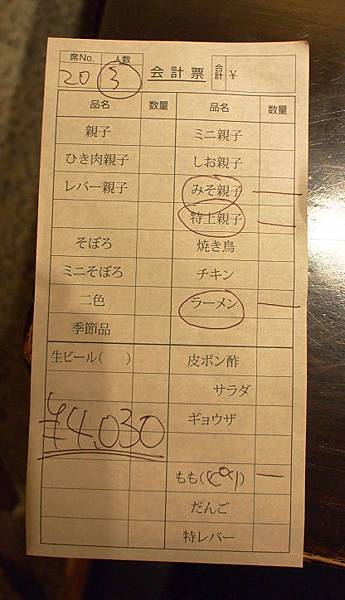 席No. 人数 会計票 合計 ¥
20 3
品名 数量 品名 数量
親子 ミニ親子
ひき肉親子 しお親子
レバー親子 みそ親子 一
特上親子 一
そぼろ 焼き鳥
ミニそぼろ チキン
二色 ラーメン 一
季節品
生ビール( ) 皮ポン酢
サラダ
¥4,030 ギョウザ
もも( ) 一
だんご
特レバー